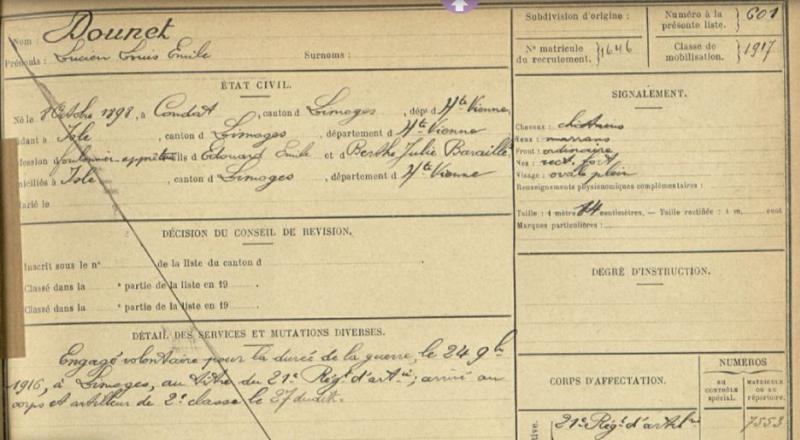 Nom : Dounet
Prénoms : Lucien Louis Emile Surnoms :
ÉTAT CIVIL.
Né le 8 Octobre 1898, à Condat, canton d Limoges, dépt d Hte Vienne,
résidant à Isle, canton d Limoges, département d Hte Vienne
profession fils d Edouard Emile et d Berthe Julie
domiciliés à Isle, canton d Limoges, département d Hte Vienne
Marié le
DÉCISION DU CONSEIL DE REVISION.
Inscrit sous le n° de la liste du canton d
Classé dans la e partie de la liste en 19
Classé dans la e partie de la liste en 19
DÉTAIL DES SERVICES ET MUTATIONS DIVERSES.
Engagé volontaire pour la durée de la guerre, le 24 9b
1916, à Limoges, au titre du 21e Régt d'artie; arrivé au
corps et artilleur de 2e classe le 27 dudit.
Subdivision d'origine :
N° matricule du recrutement. } 1646
Numéro à la présente liste. } 601
Classe de mobilisation. } 1917
SIGNALEMENT.
Cheveux : châtains
Yeux : marrons
Front : ordinaire
Nez : rect. fort
Visage : ovale plein
Renseignements physionomiques complémentaires :
Taille : 1 mètre centimètres. — Taille rectifiée : 1 m. cent
Marques particulières :
DEGRÉ D'INSTRUCTION.
CORPS D'AFFECTATION.
NUMÉROS
AU CONTRÔLE spécial.
MATRICULE OU AU répertoire.
21e Régt d'artie
7553